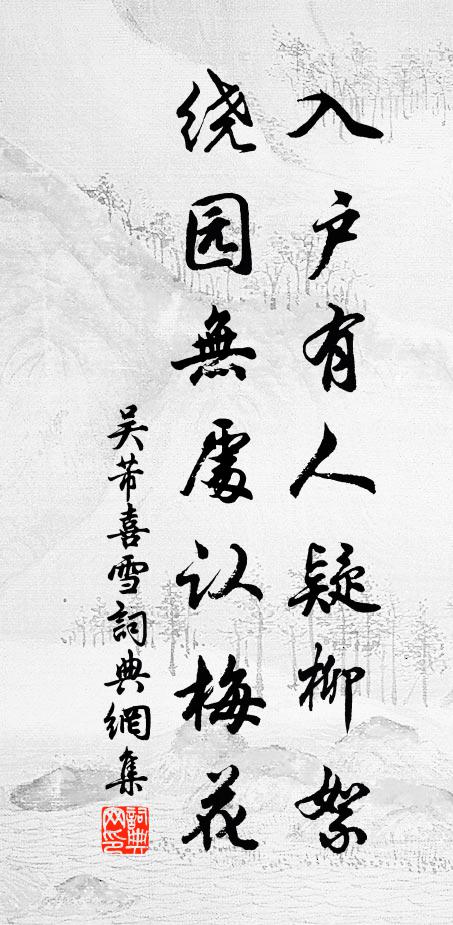 入户有人疑柳絮
绕园無處认梅花
吴芾喜雪詞典網集
詞典网印